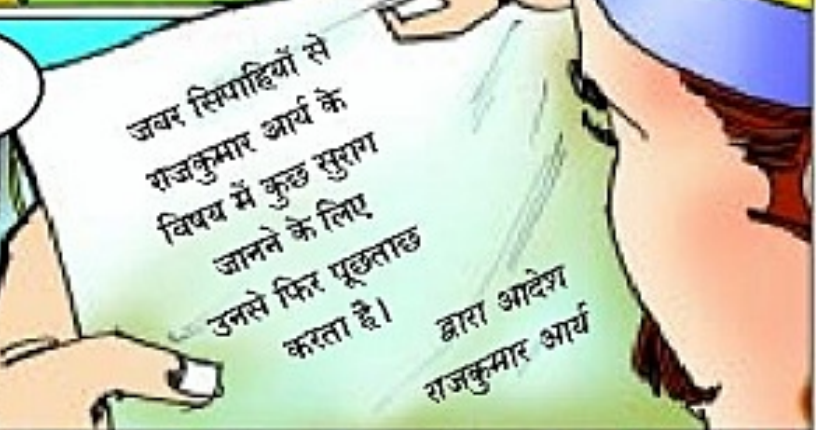 जबर सिपाहियों से
राजकुमार आर्य के
विषय में कुछ सुराग
जानने के लिए
उनसे फिर पूछताछ
करता है।
द्वारा आदेश
राजकुमार आर्य